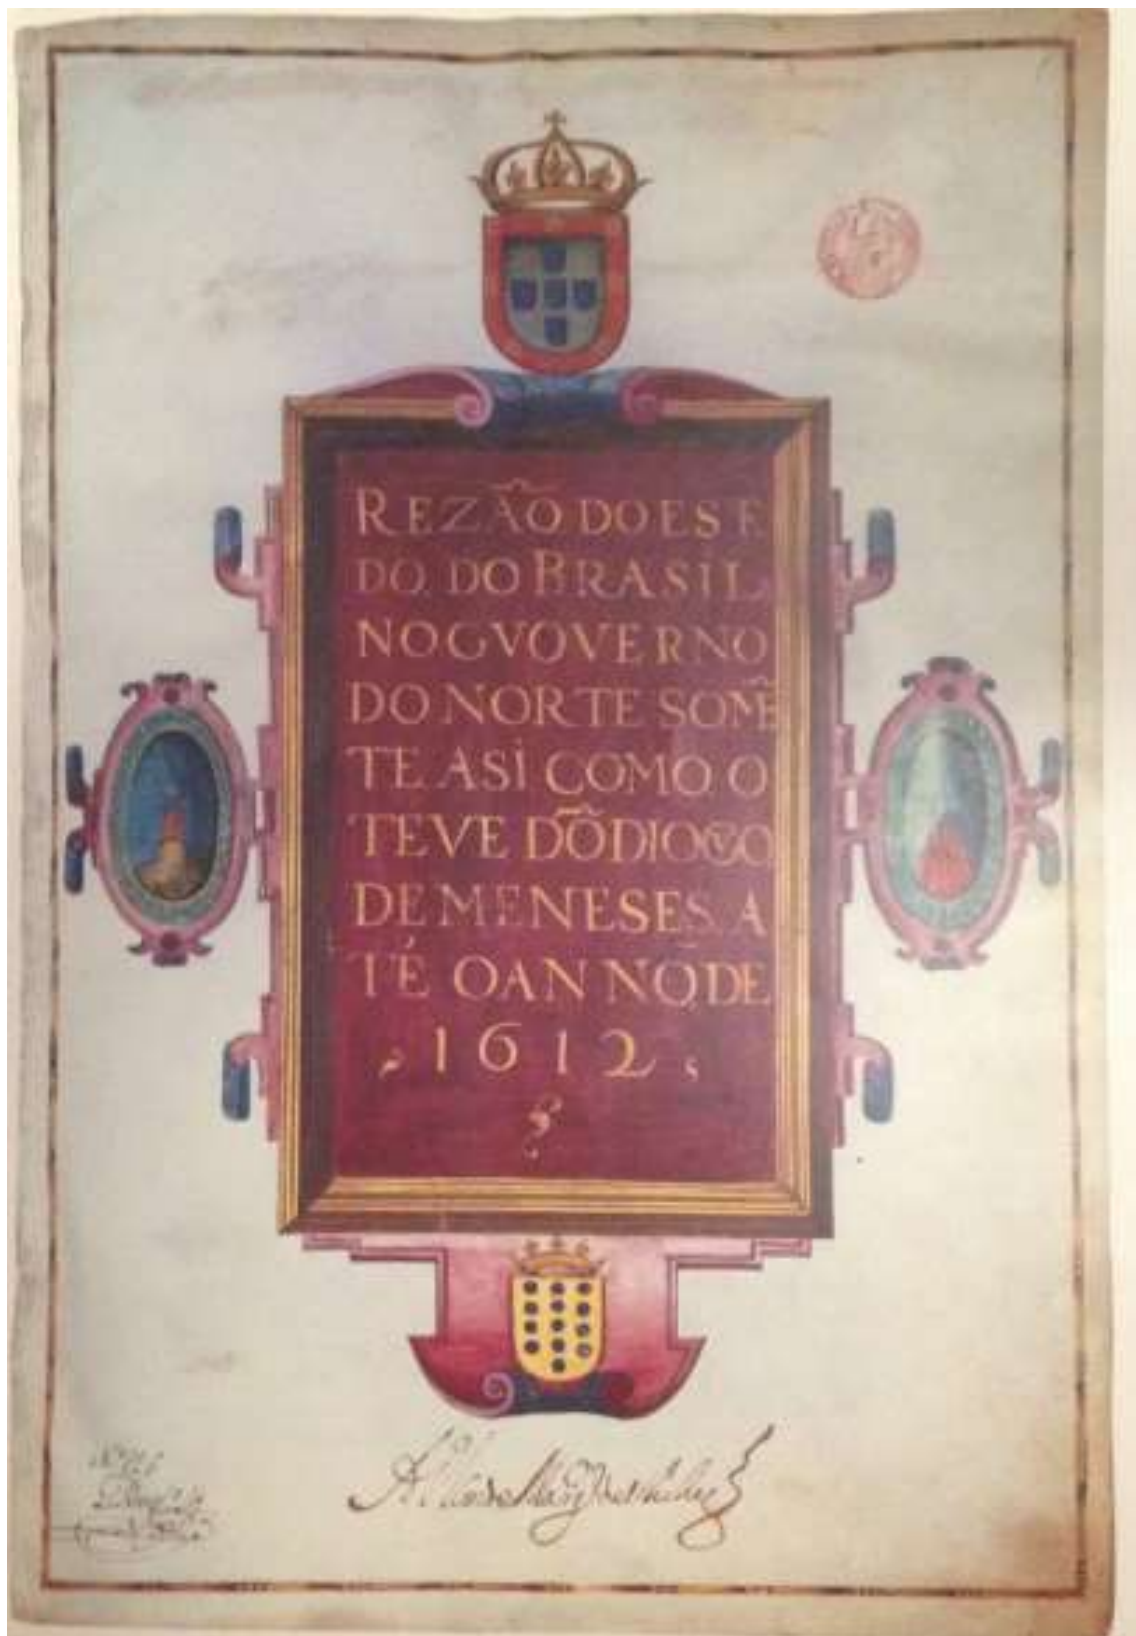 REZÃO DO ES T.
DO. DO BRASIL
NO GVOVERNO
DO NORTE SOMẼ
TE ASI COMO O
TEVE DÕ DIOGVO
DE MENESES. A
TÉ O ANNO, DE
1612